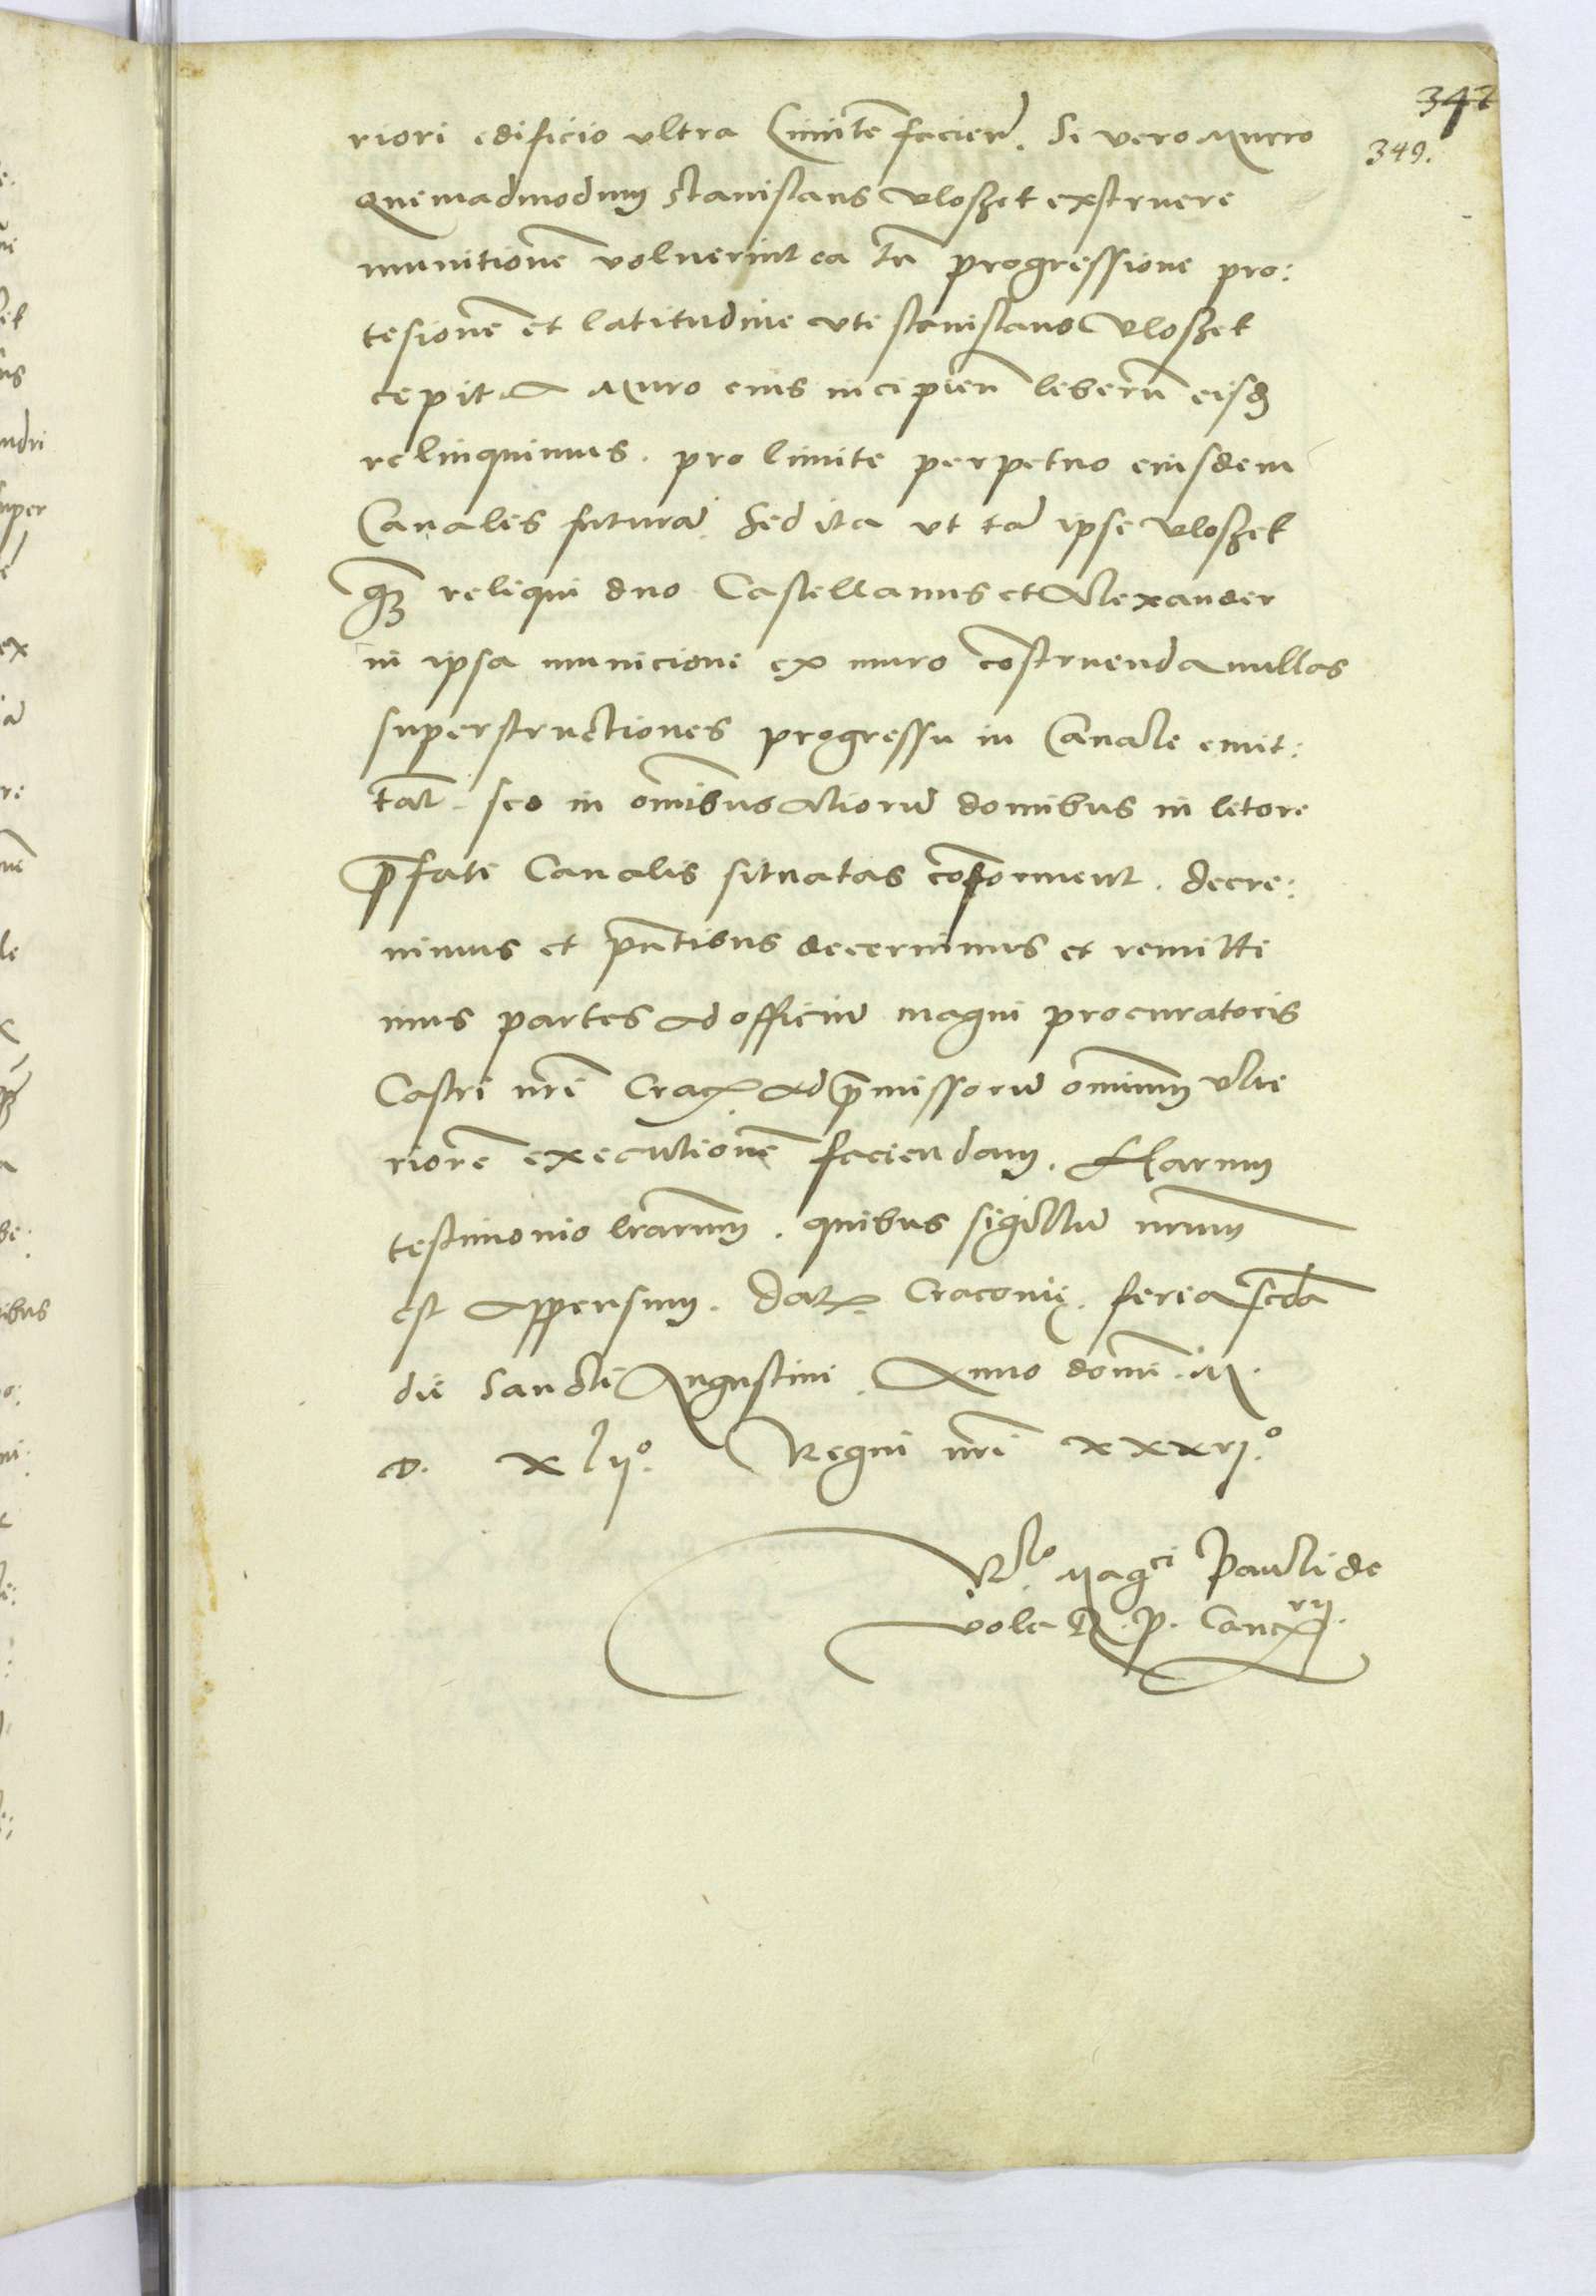 347
349.
riori edificio ultra Limitē facień. Si vero Murro
Quemadmodum Stanislaus Uloszek exstruere
munitionē voluerint ea tn̄ progressione pro:
tesionē et latitudine uti Stanislaus Uloszek
cepit a Muro eius incipień liberū eisd
relinquimus. pro limite perpetuo eiusdem
Canalis futurā. Sed ita ut tā ipse Uloszek
qz reliqui duo Castellanus et Alexander
in ipsa municione ex muro cōstruenda nullas
superstructiones progressu in Canale emit:
tāt. sed in om̄ibus aliorū domibus in litore
p̄fati Canalis situatas cōforment. decre:
uimus et pn̄tibus decernimus et remitti
mus partes ad officiū magni procuratoris
Castri nr̄i Crac. ad p̄missorū omnium ulte
riorē executionē faciendam. Harum
testimonio lr̄arum. quibus sigillū nr̄um
est appensum. Dat. Cracovię. feria scd̄a
die Sancti Augustini. Anno domī. M.
D. xlijº. Regni nr̄i xxxvjº.
Rlo Magci Pauli de
vola R. P. Canc rij.